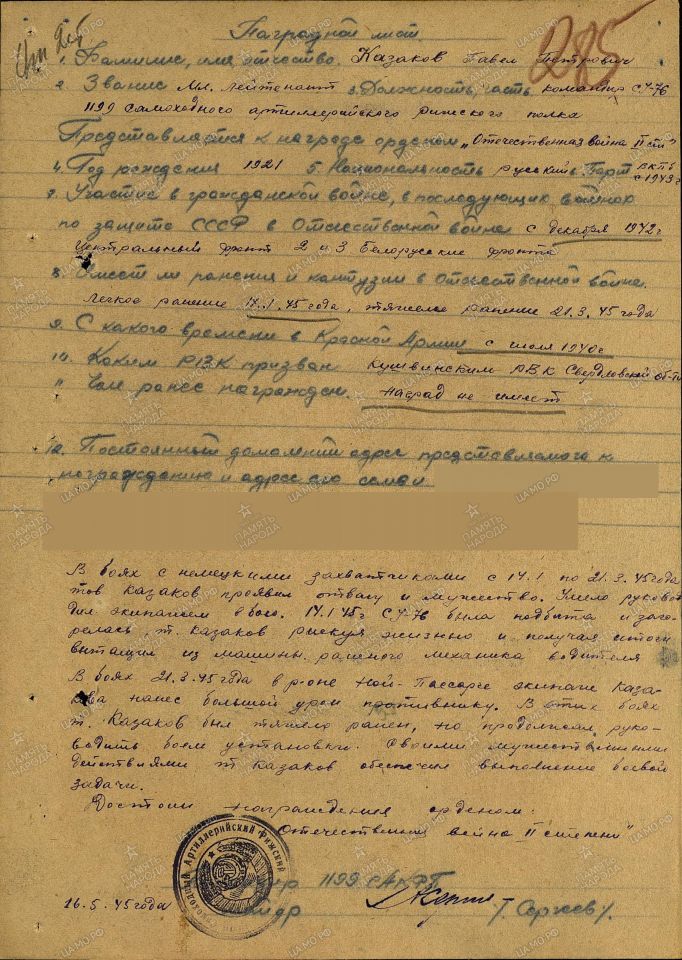 Наградной лист
285
1. Фамилия, имя отчество. Казаков Павел Петрович
2. Звание Мл. лейтенант 3. Должность, часть командир СУ-76
1199 самоходного артиллерийского рижского полка
Представляется к награде орденом „Отечественная война II ст"
4. Год рождения 1921 5. Национальность русский 6. Парт ВКПб с 1943г
7. Участие в гражданской войне, в последующих войнах
по защите СССР в Отечественной войне с декабря 1942г
Центральный фронт 2 и 3 Белорусские фронта
8. Имеет ли ранения и контузии в Отечественной войне.
легкое ранение 14.1.45 года, тяжелое ранение 21.3.45 года
9. С какого времени в Красной Армии с июля 1940г
10. Каким РВК призван Кушвинским РВК Свердловской об-ти
11. Чем ранее награжден. наград не имеет
12. Постоянный домашний адрес представляемого к
награждению и адрес его семьи
В боях с немецкими захватчиками с 14.1 по 21.3.45 года
тов Казаков проявил отвагу и мужество. Умело руково-
дил экипажем в бою. 14.1.45г СУ-76 была подбита и заго-
релась, т. Казаков рискуя жизнью и получая ожоги
вытащил из машины раненого механика водителя
В боях 21.3.45 года в р-оне Ной-Пассарге экипаж Каза-
кова нанес большой урон противнику. В этих боях
т. Казаков был тяжело ранен, но продолжал руко-
водить боем установки. Своими мужественными
действиями т Казаков обеспечил выполнение боевой
задачи.
Достоин награждения орденом:
„Отечественная война II степени"
Самоходный Артиллерийский Рижский
1199 САКРП
16.5.45 года
/Сергеев/.